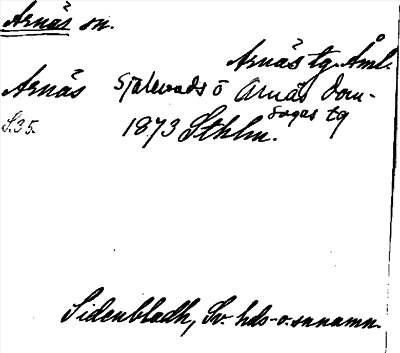 Arnäs sn.
Arnäs tg. Åml.
Arnäs Själevads o Arnäs dom-
sagas tg
S.35. 1873 Sthlm.
Sidenbladh, Sv. hds- o. snnamn.